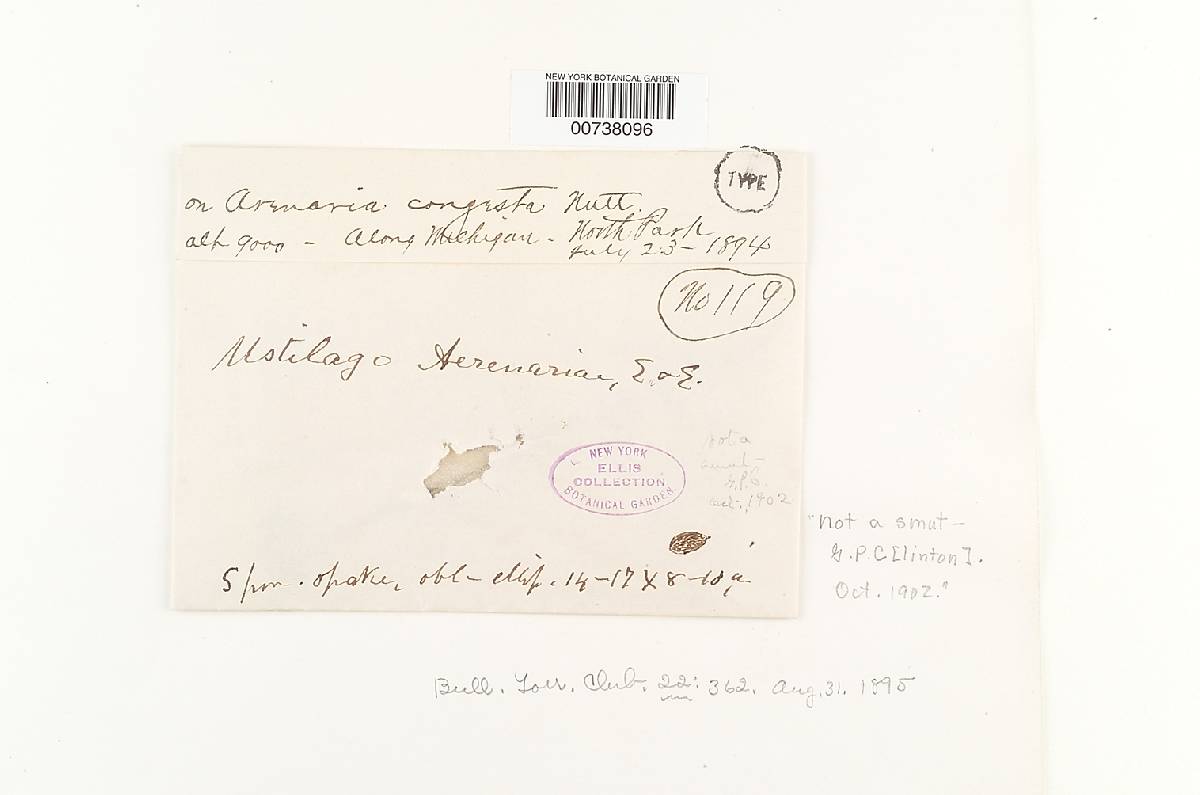 NEW YORK BOTANICAL GARDEN
00738096
TYPE
on Arenaria congesta Nutt.
alt 9000 - Along Michigan - North Park
July 23-1894
No 119
Ustilago Aerenariae, E. & E.
NEW YORK
ELLIS
COLLECTION
BOTANICAL GARDEN
not a
smut-
G.P.C.
Oct., 1902
"not a smut-
G.P.C[linton].
Oct. 1902."
Spor. opake, obl-ellip. 14-17 X 8-10 µ
Bull. Torr. Club. 22: 362. Aug. 31. 1895